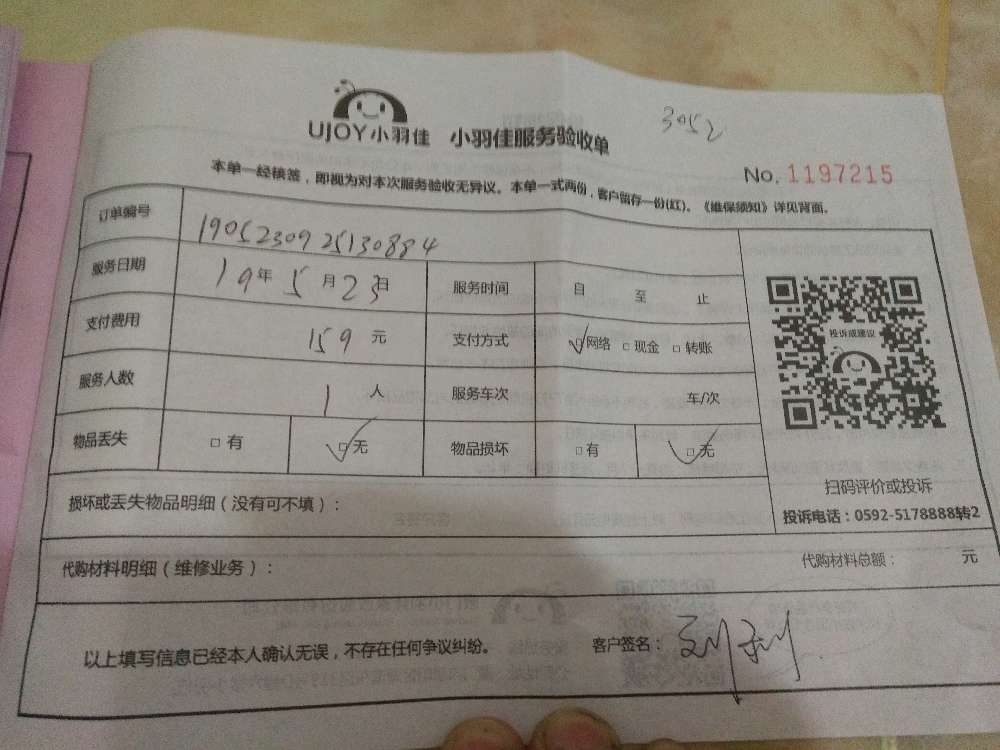 3052
UJOY小羽佳 小羽佳服务验收单
No. 1197215
本单一经核签，即视为对本次服务验收无异议。本单一式两份，客户留存一份(红)。《维保须知》详见背面。
订单编号 1905230925130884
服务日期 19年 5月23日 服务时间 自 至 止
支付费用 159 元 支付方式 网络 □现金 □转账
服务人数 1 人 服务车次 车/次
物品丢失 □有 □无 物品损坏 □有 □无
投诉或建议
扫码评价或投诉
投诉电话：0592-5178888转2
损坏或丢失物品明细（没有可不填）：
代购材料明细（维修业务）： 代购材料总额： 元
以上填写信息已经本人确认无误，不存在任何争议纠纷。 客户签名：